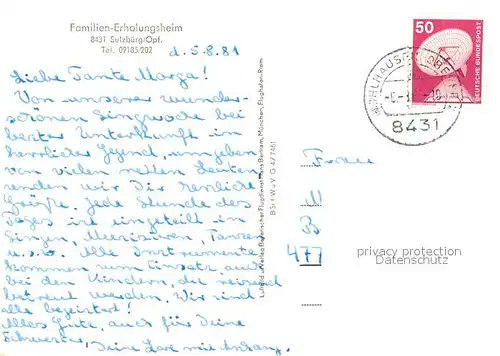 Familien-Erholungsheim
8431 Sulzbürg/Opf.
Tel. 09185/202
d. 5.8.81
Liebe Tante Marga!
Von unserer wunder-
schönen Singwoche bei
bester Unterkunft in
herrlicher Gegend, umgeben
von vielen netten Leuten
senden wir Dir herzliche
Grüße. Jede Stunde des
Tages ist eingeteilt in
Singen, Musizieren, Tanzen
u.s.w. Alle Instrumente
kommen zum Einsatz, auch
bei den Kindern, die reizend
betreut werden. Wir sind
alle begeistert!
Alles Gute, auch für Deine
Schwester, Deine mit Anhang.
Luftbild u. Verlag Bayerischer Flugdienst Hans Bertram, München, Flughafen-Riem
BSt I W u V G 4/7461
50
DEUTSCHE BUNDESPOST
MÜHLHAUSEN
8431
Frau
M
B
477
privacy protection
Datenschutz